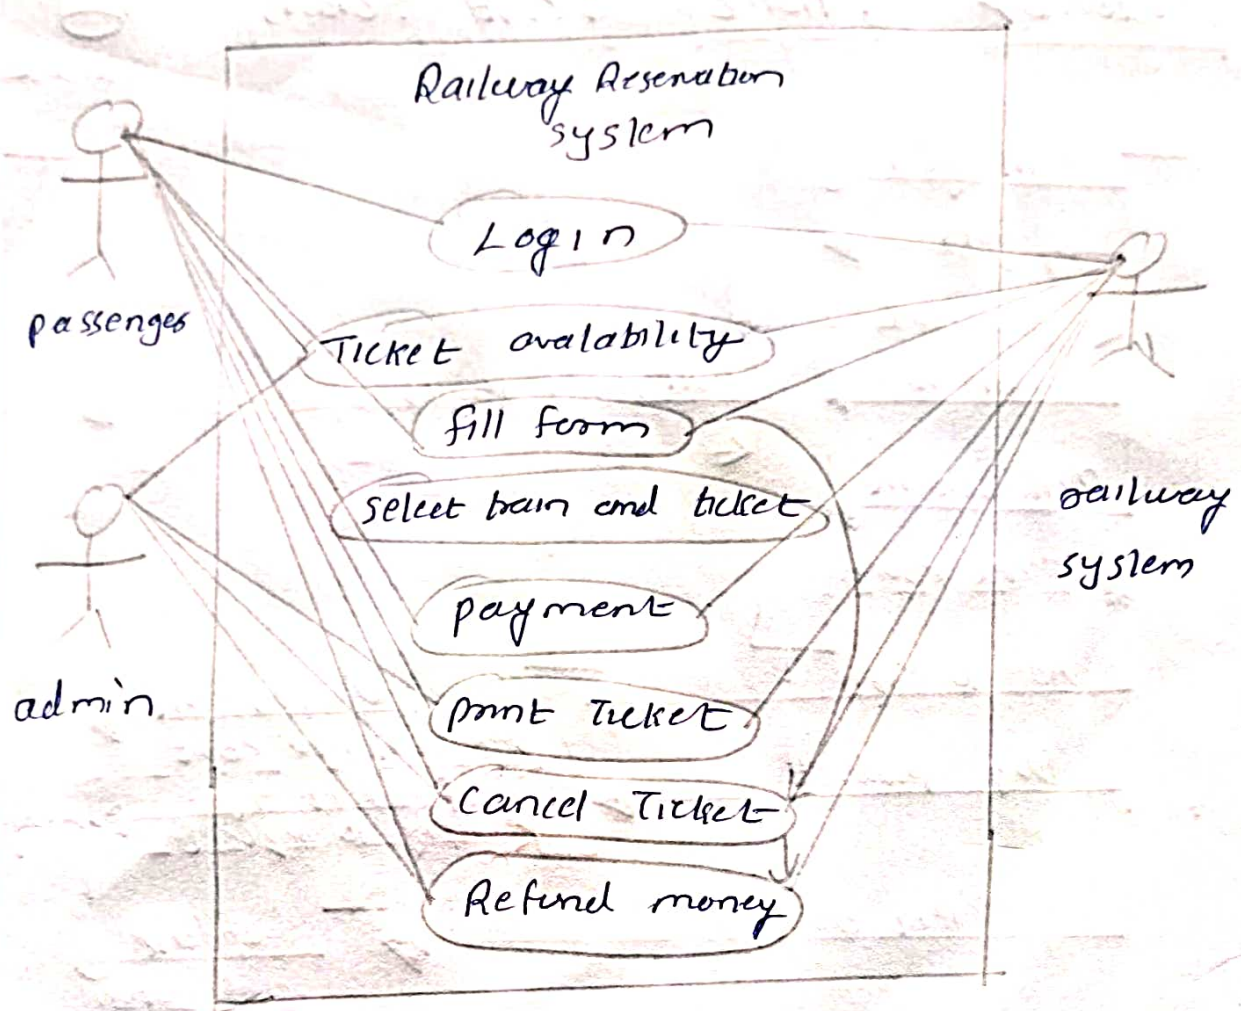 Railway Reservation
system
Login
passenger
Ticket avalability
fill form
select train and ticket
railway
system
payment
admin
print Ticket
Cancel Ticket
Refund money